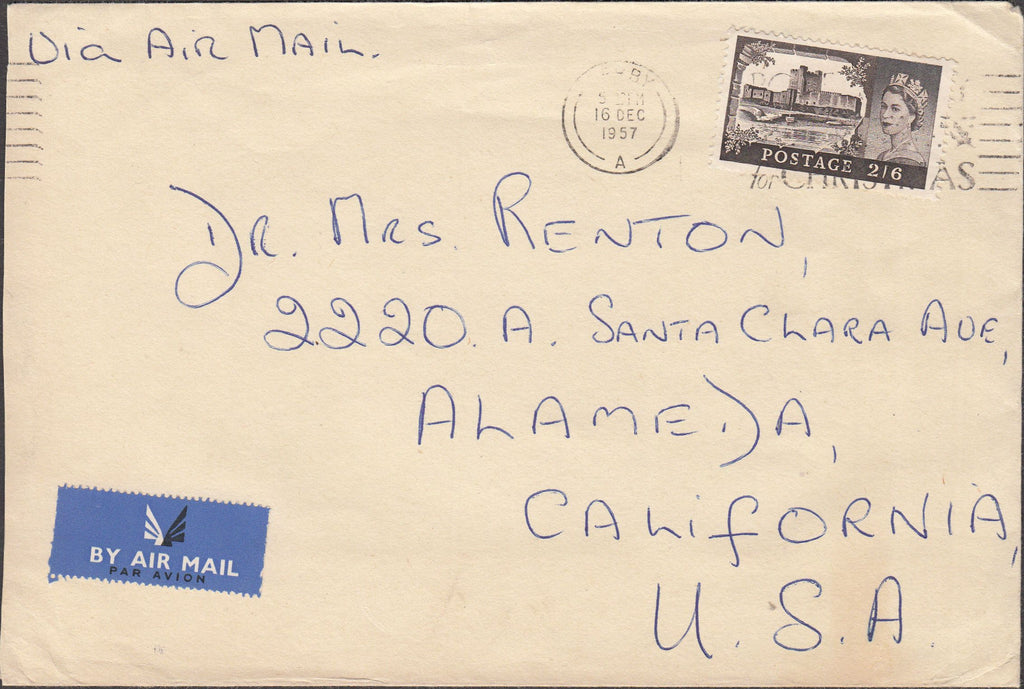 Via Air Mail.
5
16 DEC
1957
A
POSTAGE 2/6
for CHRISTMAS
Dr. Mrs. Renton,
2220. A. Santa Clara Ave,
Alameda,
California,
U.S.A.
BY AIR MAIL
PAR AVION